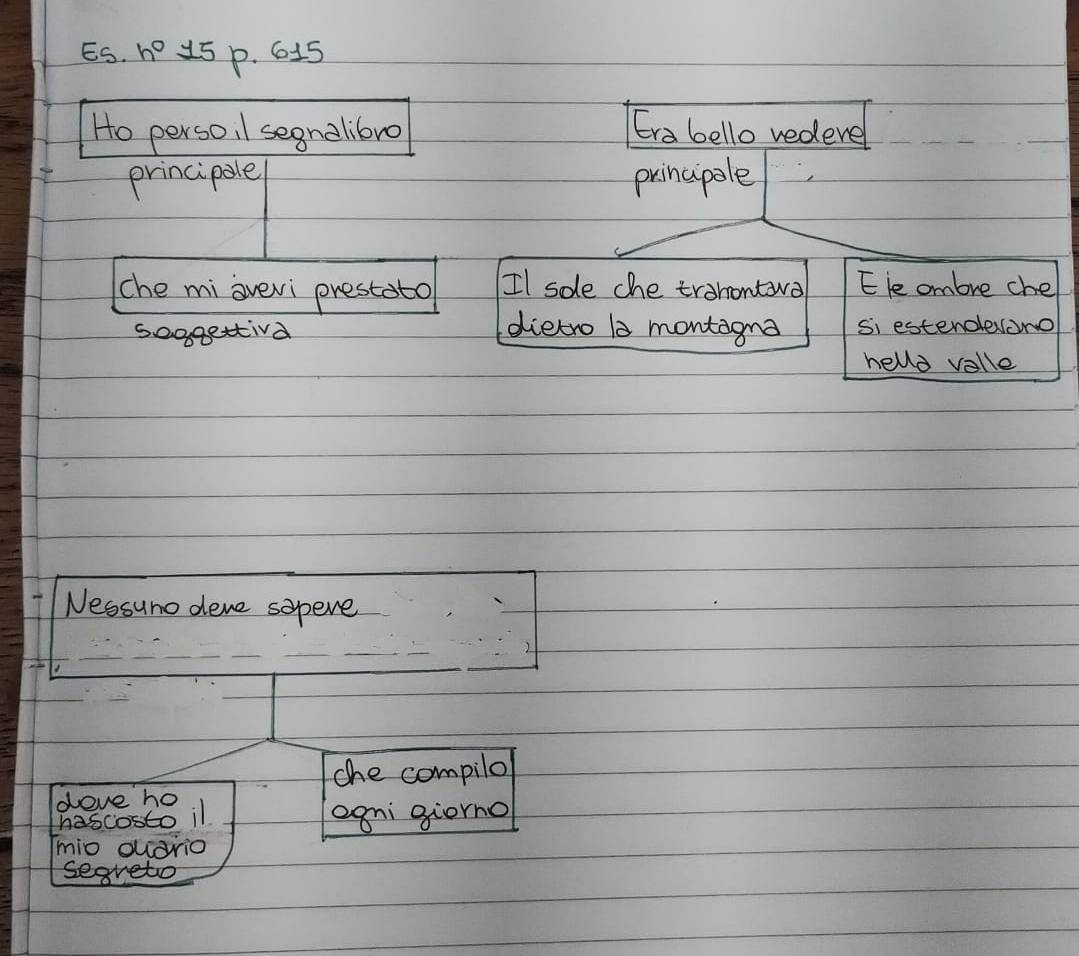 Es. nº 15 p. 615
Ho perso il segnalibro
principale
Che mi avevi prestato
soggettiva
Era bello vedere
principale
Il sole che tramontava
dietro la montagna
E le ombre che
si estendevano
nella valle
Nessuno deve sapere
dove ho
nascosto il
mio diario
segreto
che compilo
ogni giorno